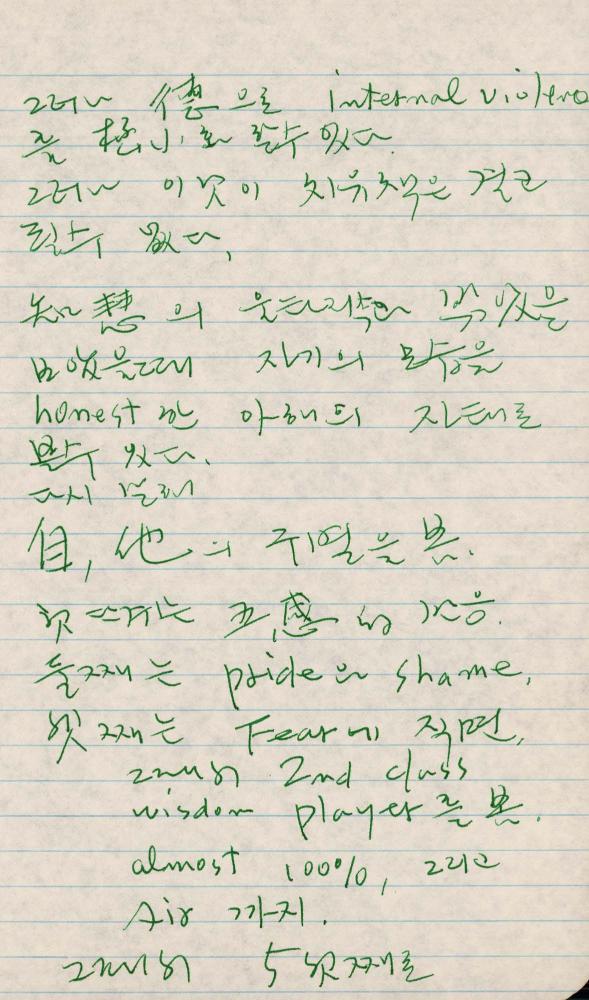 그러나 德으로 internal violenc
를 極小化 할수 있다.
그러나 이것이 치유책은 결코
될수 없다,
知慧의
보았을때 자기의 모습을
honest한 아래의 자태로
볼수 있다.
다시 말해
自, 他의 귀열을 봄.
첫째는 五感的 반응.
둘째는 pride와 shame,
셋째는 Fear에 직면,
그래서 2nd class
wisdom player를 봄.
almost 100%, 그리고
Air 까지.
그래서 5첫째로